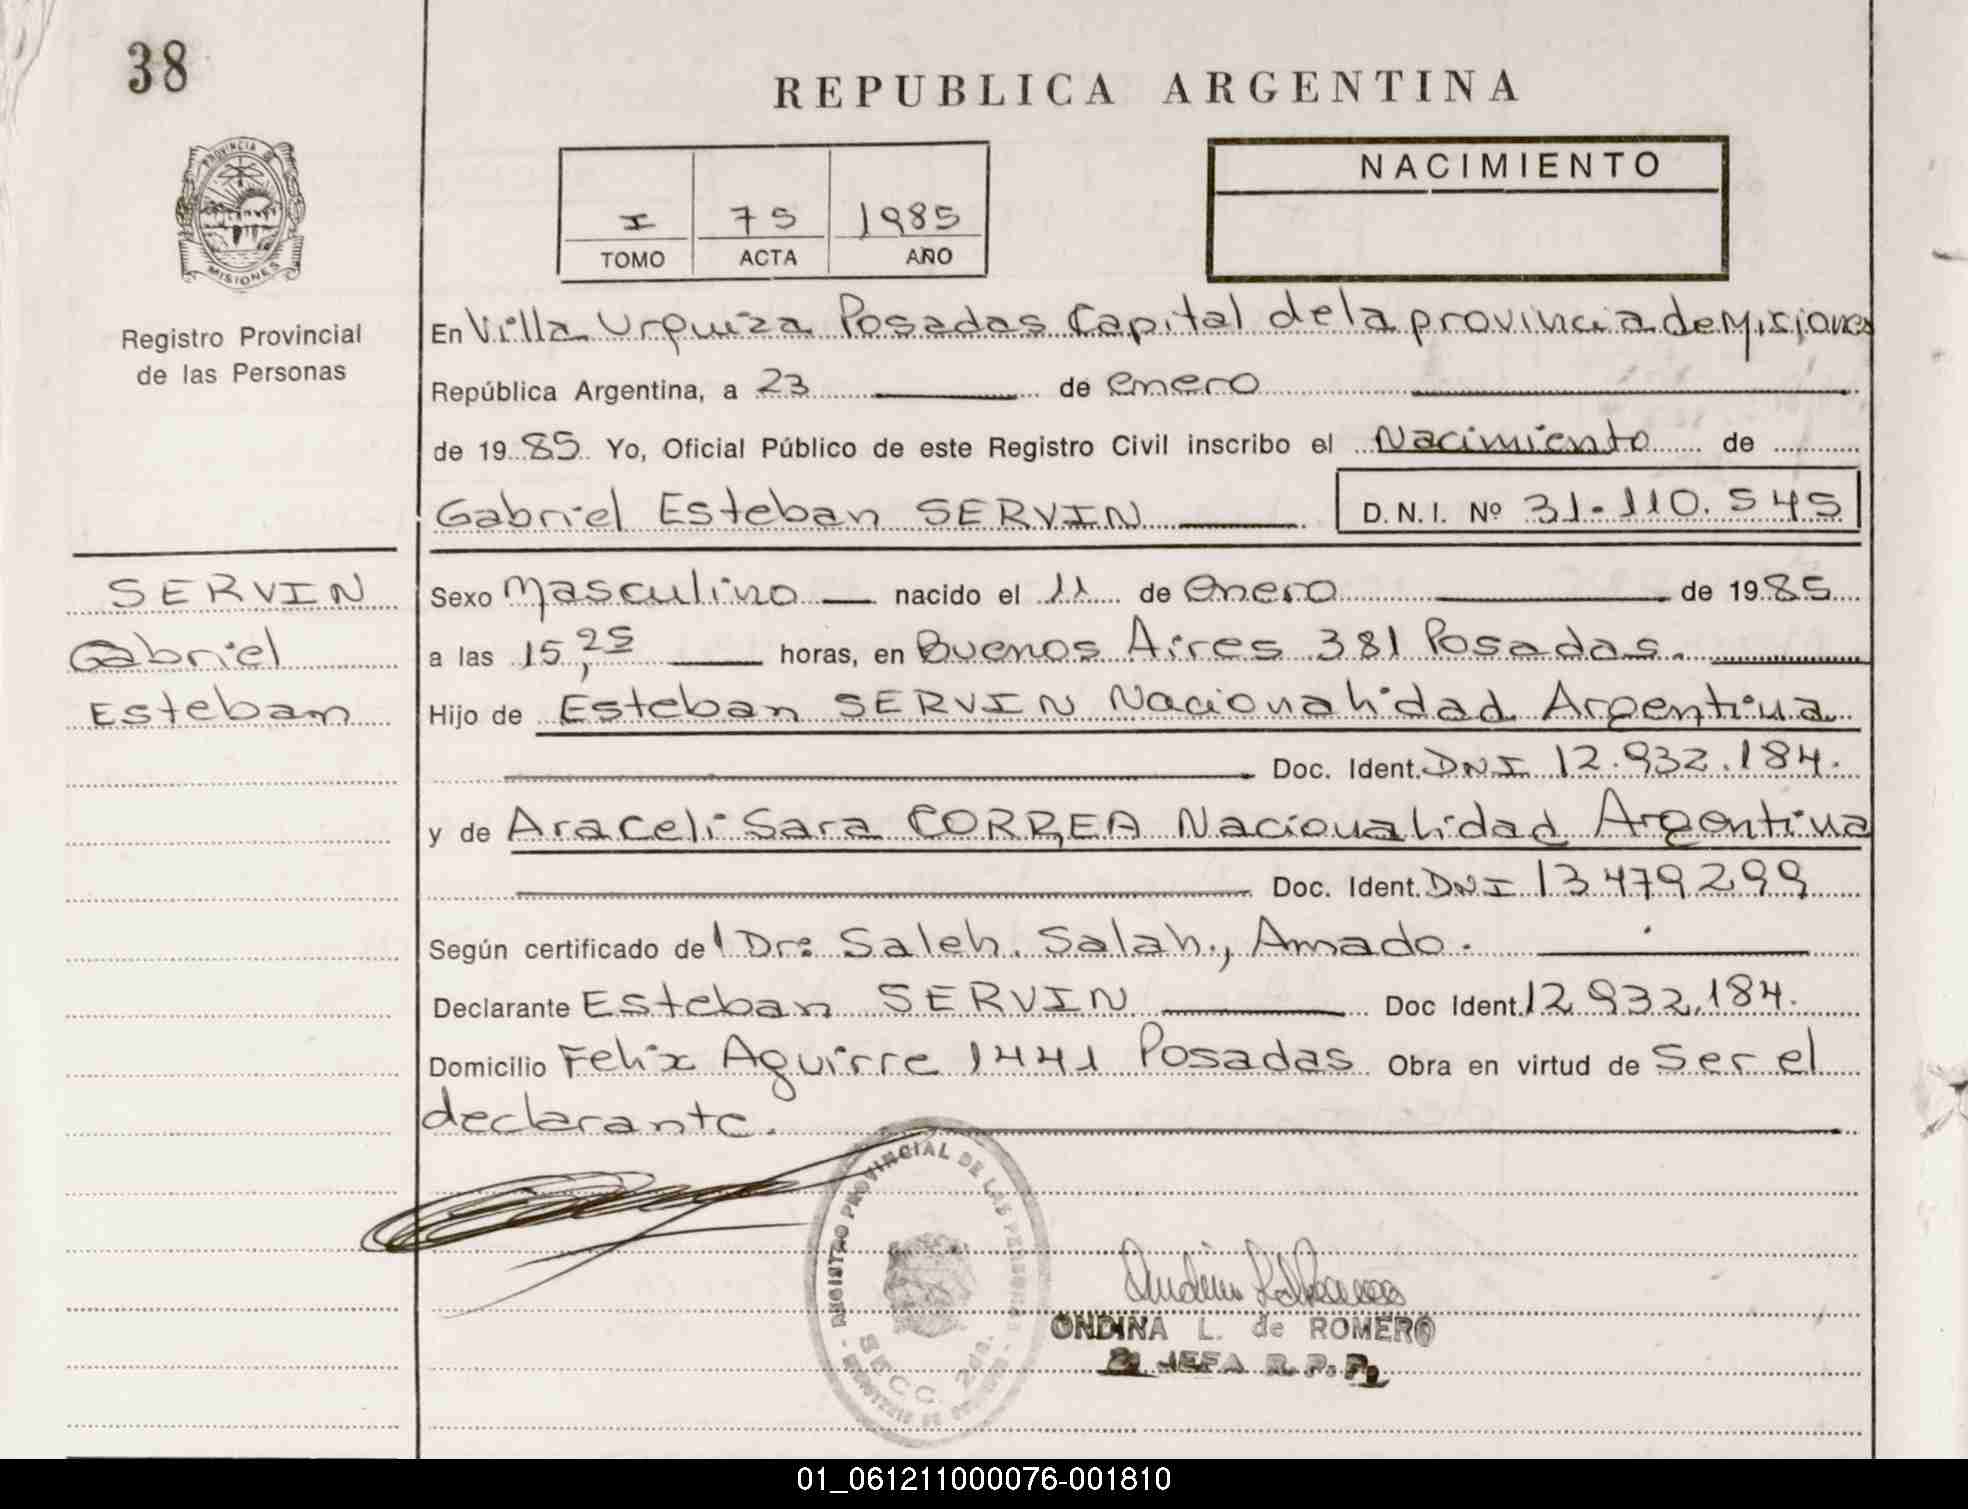 38
REPUBLICA ARGENTINA
PROVINCIA DE
MISIONES
Registro Provincial
de las Personas
I 75 1985
TOMO ACTA AÑO
NACIMIENTO
En Villa Urquiza Posadas Capital de la provincia de Misiones
República Argentina, a 23 de enero
de 1985 Yo, Oficial Público de este Registro Civil inscribo el Nacimiento de
Gabriel Esteban SERVIN D.N.I. Nº 31.110.545
SERVIN
Gabriel
Esteban
Sexo Masculino nacido el 11 de enero de 1985
a las 15,25 horas, en Buenos Aires 381 Posadas.
Hijo de Esteban SERVIN Nacionalidad Argentina
Doc. Ident. DNI 12.932.184.
y de Araceli Sara CORREA Nacionalidad Argentina
Doc. Ident. DNI 13479299
Según certificado del Dr: Saleh. Salah., Amado.
Declarante Esteban SERVIN Doc Ident. 12932.184.
Domicilio Felix Aguirre 1441 Posadas Obra en virtud de Ser el
declarante.
REGISTRO PROVINCIAL DE LAS PERSONAS
SECC. 2da.
ONDINA L. de ROMERO
JEFA R. P. P.
01_061211000076-001810